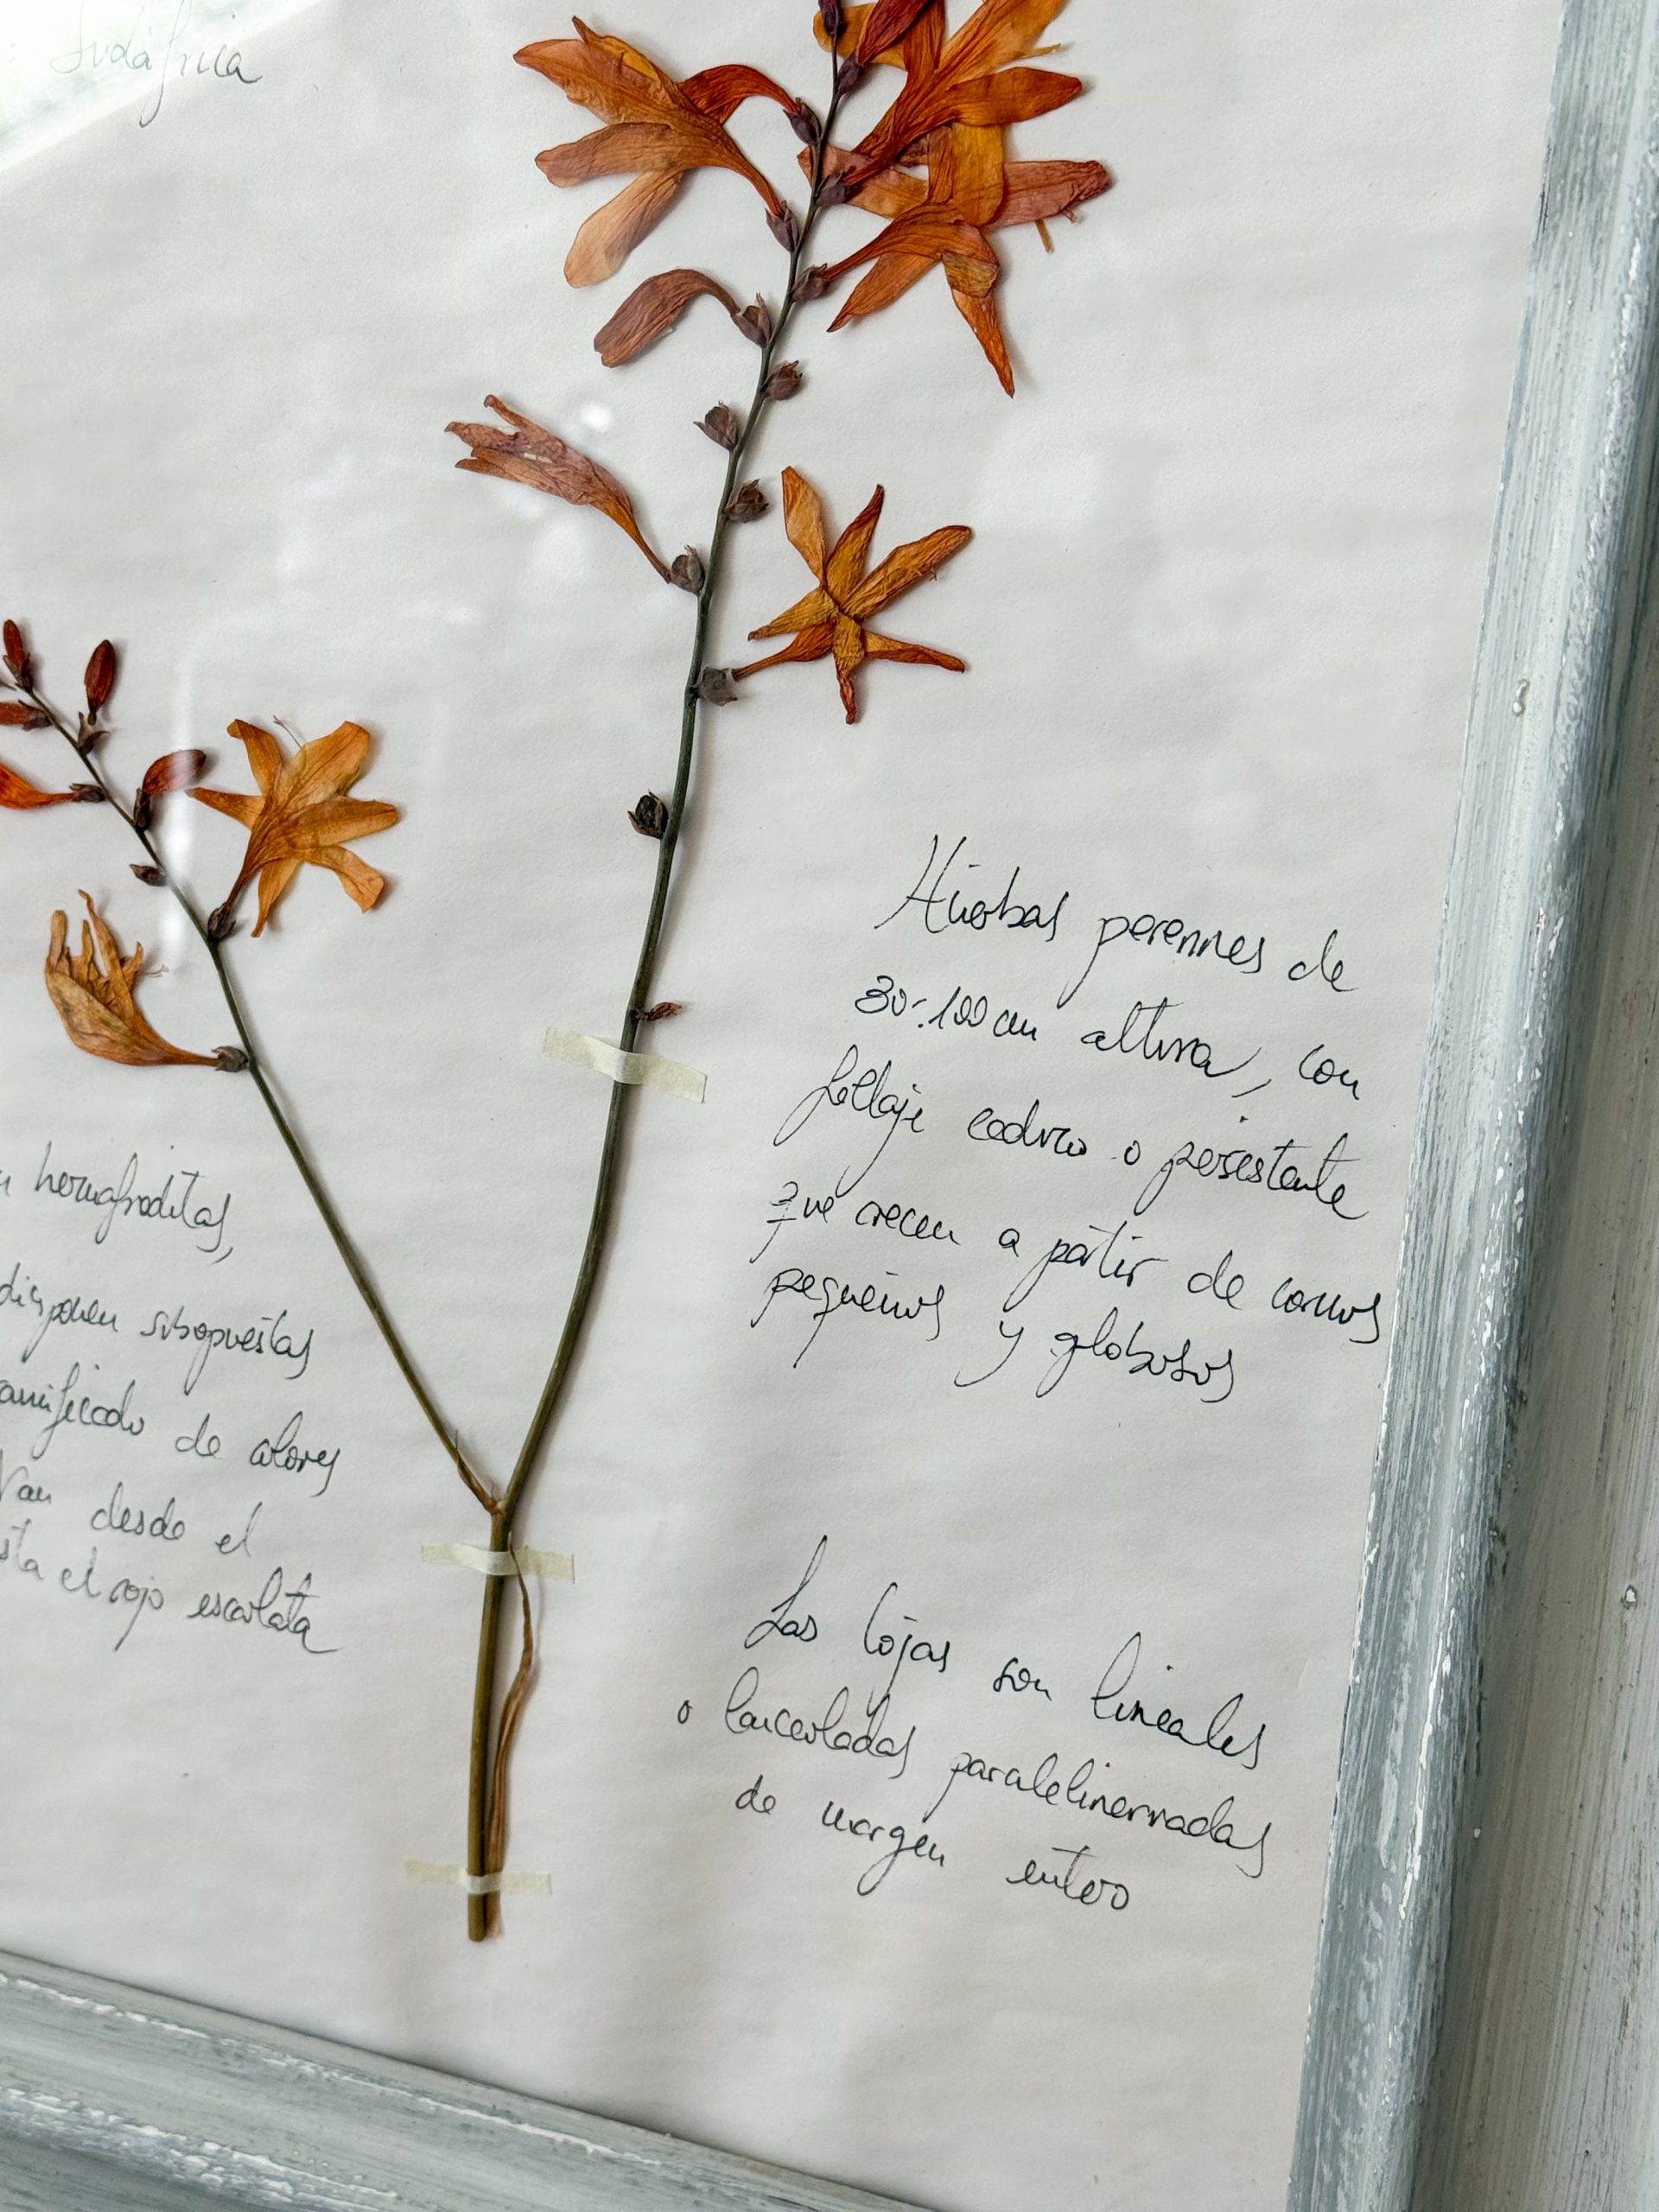 Sudáfrica
hermafroditas,
disponen subopuestas
ramificado de colores
Van desde el
el rojo escarlata
Hierbas perennes de
30-100 cm altura, con
follaje caduco o persistente
que crecen a partir de cormos
pequeños y globosos
Las hojas son lineales
o lanceoladas paralelinervadas
de margen entero